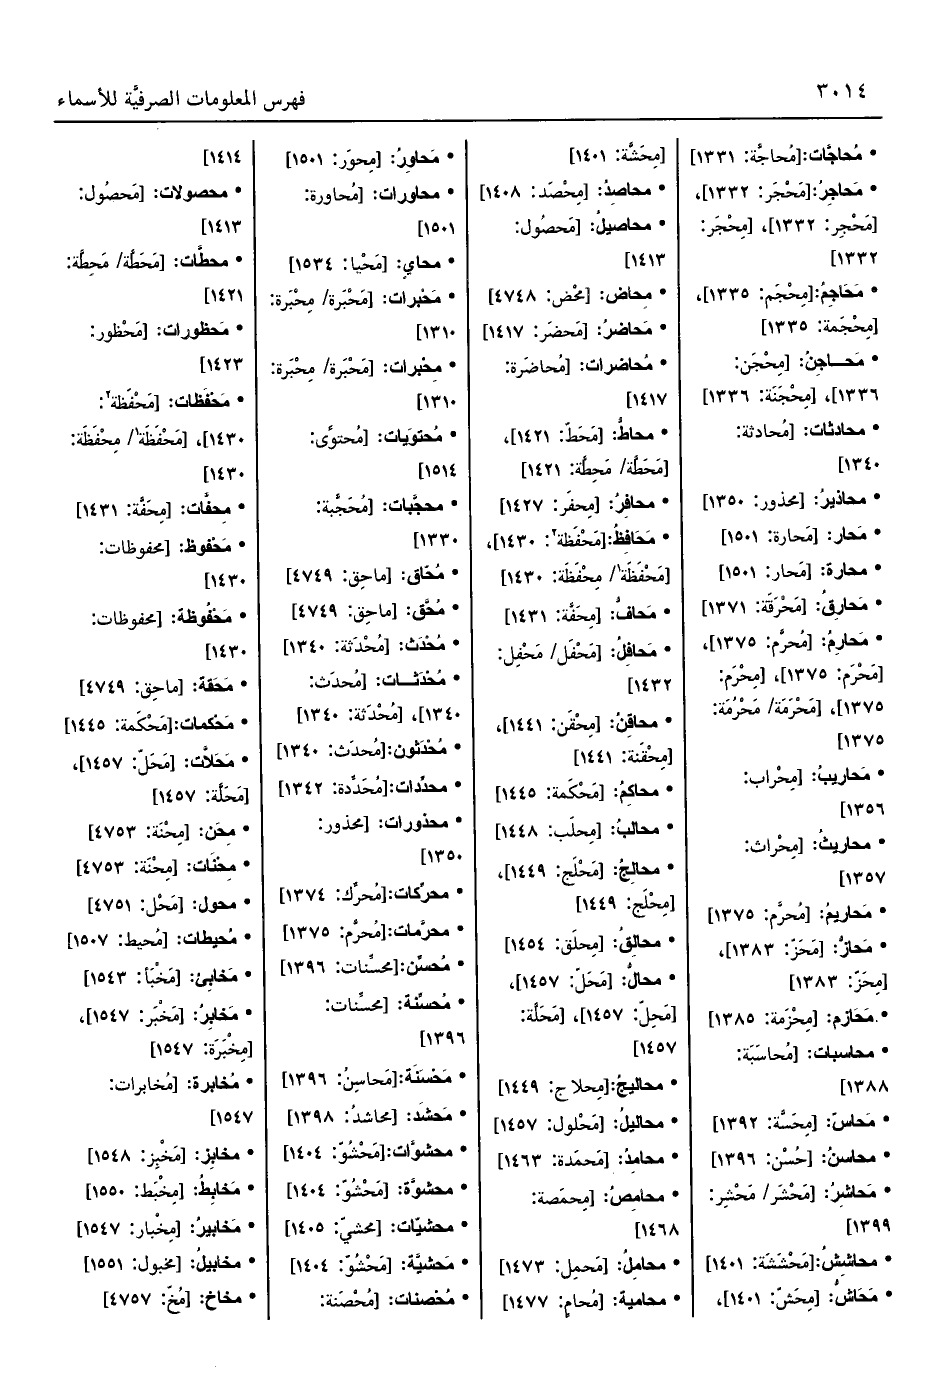 ٣٠١٤
فهرس المعلومات الصرفيَّة للأسماء
• مُحاجَّات: [مُحاجَّة: ١٣٣١]
• مَحاجِرُ: [مَحْجَر: ١٣٣٢]،
[مَحْجِر: ١٣٣٢]، [مِحْجَر:
١٣٣٢]
• مَحَاجِمُ: [مِحْجَم: ١٣٣٥]،
[مِحْجَمة: ١٣٣٥]
• مَحــاجِنُ: [مِحْجَن:
١٣٣٦]، [مِحْجَنَة: ١٣٣٦]
• محادثات: [مُحادثة:
١٣٤٠]
• محاذيرُ: [محذور: ١٣٥٠]
• مَحار: [مَحارة: ١٥٠١]
• محارة: [مَحار: ١٥٠١]
• مَحارِقُ: [مَحْرَقَة: ١٣٧١]
• مَحارِمُ: [مُحرَّم: ١٣٧٥]،
[مَحْرَم: ١٣٧٥]، [مِحْرَم:
١٣٧٥]، [مَحْرَمَة/ مَحْرُمَة:
١٣٧٥]
• مَحاريبُ: [مِحْراب:
١٣٥٦]
• محاريثُ: [مِحْراث:
١٣٥٧]
• مَحاريمُ: [مُحرَّم: ١٣٧٥]
• مَحازُّ: [مَحَزّ: ١٣٨٣]،
[مِحَزّ: ١٣٨٣]
• مَحَازِم: [مِحْزَمة: ١٣٨٥]
• محاسبات: [مُحاسَبَة:
١٣٨٨]
• مَحاسّ: [مِحَسَّة: ١٣٩٢]
• محاسنُ: [حُسْن: ١٣٩٦]
• مَحاشرُ: [مَحْشَر/ مَحْشِر:
١٣٩٩]
• محاششُ: [مَحْشَشَة: ١٤٠١]
• مَحَاشُّ: [مِحَشّ: ١٤٠١]،
[مِحَشَّة: ١٤٠١]
• محاصدُ: [مِحْصَد: ١٤٠٨]
• محاصيلُ: [مَحصُول:
١٤١٣]
• محاض: [مَحْض: ٤٧٤٨]
• مَحاضرُ: [مَحضَر: ١٤١٧]
• مُحاضرات: [مُحاضَرة:
١٤١٧]
• محاطُّ: [مَحَطّ: ١٤٢١]،
[مَحَطَّة/ مَحِطَّة: ١٤٢١]
• مَحافرُ: [مِحفَر: ١٤٢٧]
• مَحَافظُ: [مَحْفَظَة٢: ١٤٣٠]،
[مَحْفَظَة١/ مِحْفَظَة: ١٤٣٠]
• مَحافُّ: [مِحَفَّة: ١٤٣١]
• مَحافلُ: [مَحْفَل/ مَحْفِل:
١٤٣٢]
• محاقنُ: [مِحْقَن: ١٤٤١]،
[مِحْقَنَة: ١٤٤١]
• محاكمُ: [مَحْكَمة: ١٤٤٥]
• محالبُ: [مِحلَب: ١٤٤٨]
• محالجُ: [مَحْلَج: ١٤٤٩]،
[مِحْلَج: ١٤٤٩]
• محالقُ: [مِحلَق: ١٤٥٤]
• محالُّ: [مَحَلّ: ١٤٥٧]،
[مَحِلّ: ١٤٥٧]، [مَحَلَّة:
١٤٥٧]
• محاليجُ: [مِحلاج: ١٤٤٩]
• محاليلُ: [مَحْلول: ١٤٥٧]
• محامدُ: [مَحمَدة: ١٤٦٣]
• محامصُ: [مِحمَصة:
١٤٦٨]
• محاملُ: [مَحمِل: ١٤٧٣]
• محامية: [مُحامٍ: ١٤٧٧]
• مَحاورُ: [مِحوَر: ١٥٠١]
• محاورات: [مُحاورة:
١٥٠١]
• محايٍ: [مَحْيا: ١٥٣٤]
• مَحْبرات: [مَحْبَرة/ مِحْبَرة:
١٣١٠]
• مِحْبرات: [مَحْبَرة/ مِحْبَرة:
١٣١٠]
• مُحتويات: [مُحتوًى:
١٥١٤]
• محجَّبات: [مُحَجَّبة:
١٣٣٠]
• مُحَّاق: [ماحِق: ٤٧٤٩]
• مُحَّق: [ماحِق: ٤٧٤٩]
• مُحْدَث: [مُحْدَثَة: ١٣٤٠]
• مُحْدَثــات: [مُحدَث:
١٣٤٠]، [مُحْدَثة: ١٣٤٠]
• مُحْدَثون: [مُحدَث: ١٣٤٠]
• محدِّدات: [مُحَدِّدة: ١٣٤٢]
• محذورات: [محذور:
١٣٥٠]
• محرِّكات: [مُحرِّك: ١٣٧٤]
• محرَّمات: [مُحرَّم: ١٣٧٥]
• مُحسِّن: [محسِّنات: ١٣٩٦]
• مُحسِّنة: [محسِّنات:
١٣٩٦]
• مَحْسَنَة: [مَحاسِنُ: ١٣٩٦]
• مَحشَد: [محاشدُ: ١٣٩٨]
• محشوَّات: [مَحْشُوّ: ١٤٠٤]
• محشوَّة: [مَحْشُوّ: ١٤٠٤]
• محشيّات: [محشيّ: ١٤٠٥]
• مَحشيَّة: [مَحْشُوّ: ١٤٠٤]
• مُحْصنات: [مُحْصَنة:
١٤١٤]
• محصولات: [مَحصُول:
١٤١٣]
• محطَّات: [مَحَطَّة/ مَحِطَّة:
١٤٢١]
• محظورات: [مَحْظور:
١٤٢٣]
• مَحْفَظات: [مَحْفَظة٢:
١٤٣٠]، [مَحْفَظَة١/ مِحْفَظَة:
١٤٣٠]
• محفَّات: [مِحَفَّة: ١٤٣١]
• مَحْفوظ: [محفوظات:
١٤٣٠]
• مَحْفُوظة: [محفوظات:
١٤٣٠]
• مَحَقة: [ماحِق: ٤٧٤٩]
• مَحْكمات: [مَحْكَمة: ١٤٤٥]
• مَحَلاَّت: [مَحَلّ: ١٤٥٧]،
[مَحَلَّة: ١٤٥٧]
• محَن: [مِحْنَة: ٤٧٥٣]
• محْنَات: [مِحْنَة: ٤٧٥٣]
• محول: [مَحْل: ٤٧٥١]
• مُحيطات: [مُحيط: ١٥٠٧]
• مَخابئ: [مَخْبَأ: ١٥٤٣]
• مَخابرُ: [مَخْبَر: ١٥٤٧]،
[مِخْبَرَة: ١٥٤٧]
• مُخابرة: [مُخابرات:
١٥٤٧]
• مخابز: [مَخْبِز: ١٥٤٨]
• مَخابطُ: [مِخْبَط: ١٥٥٠]
• مَخابيرُ: [مِخْبار: ١٥٤٧]
• مخابيلُ: [مخبول: ١٥٥١]
• مخاخ: [مُخّ: ٤٧٥٧]